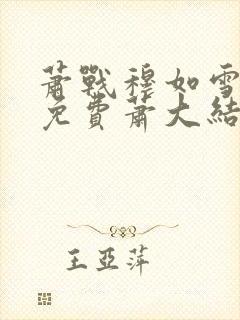 蕭戰穆如雪
免費蕭大結
王亞萍